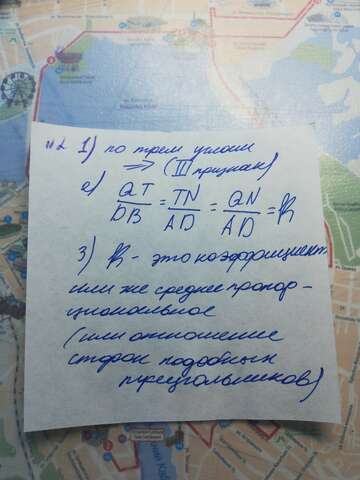 №2 1) по трем углам
⇒ (III признак)
2) QT/DB = TN/AD = QN/AD = k
3) k - это коэффициент,
или же среднее пропор-
циональное
(или отношение
сторон подобных
треугольников)